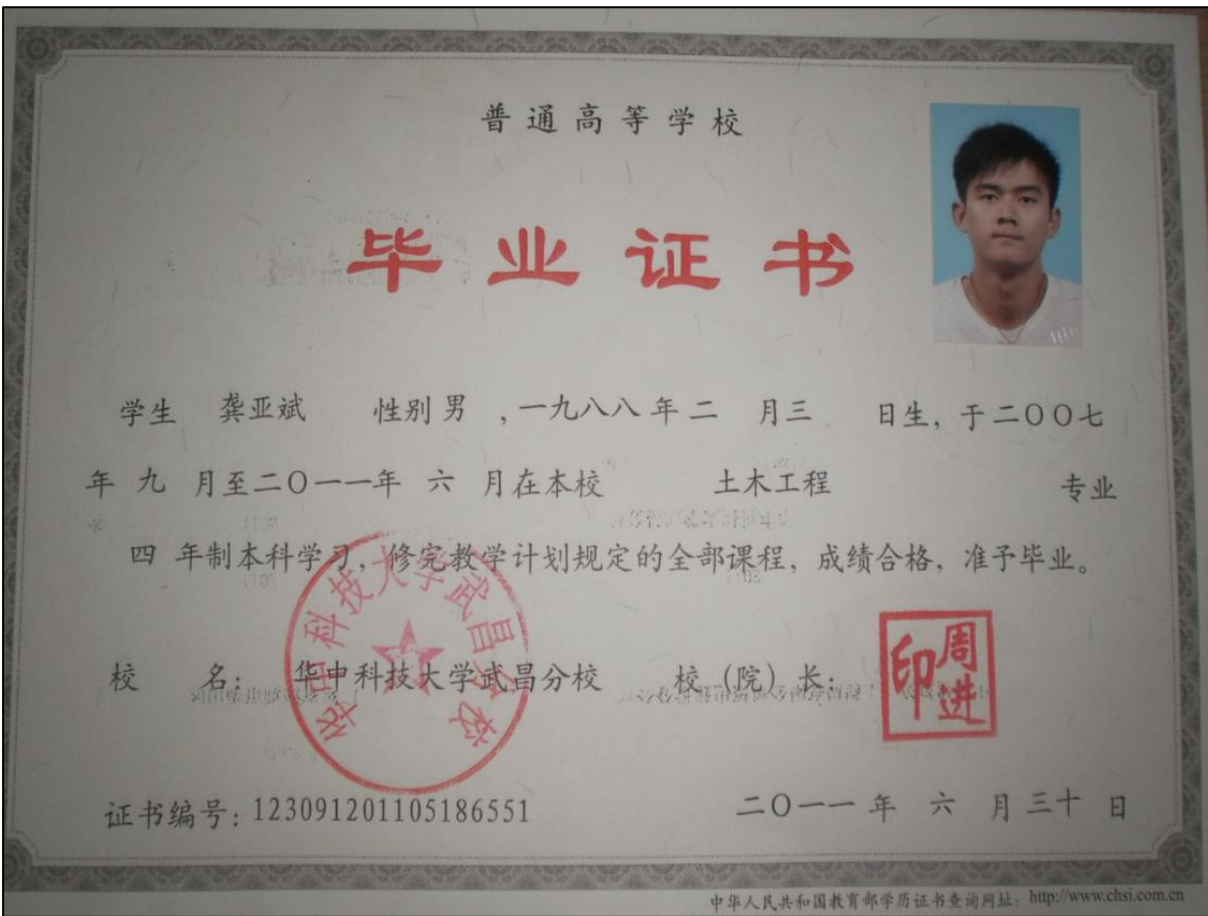 普通高等学校
毕业证书
学生 龚亚斌 性别 男 ,一九八八年二 月三 日生, 于二〇〇七
年 九 月至二〇一一年 六 月在本校 土木工程 专业
四 年制本科学习, 修完教学计划规定的全部课程, 成绩合格, 准予毕业。
华中科技大学武昌分校
校 名: 华中科技大学武昌分校 校 (院) 长:
周进印
证书编号: 123091201105186551 二〇一一 年 六 月 三十 日
中华人民共和国教育部学历证书查询网址: http://www.chsi.com.cn